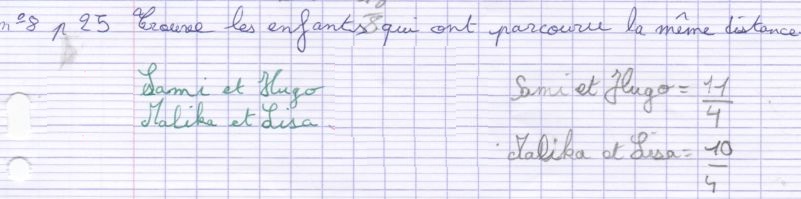 n°8 p 25 Trouve les enfants qui ont parcouru la même distance
Sami et Hugo
Malika et Lisa.
Sami et Hugo = 11/4
Malika et Lisa = 10/4